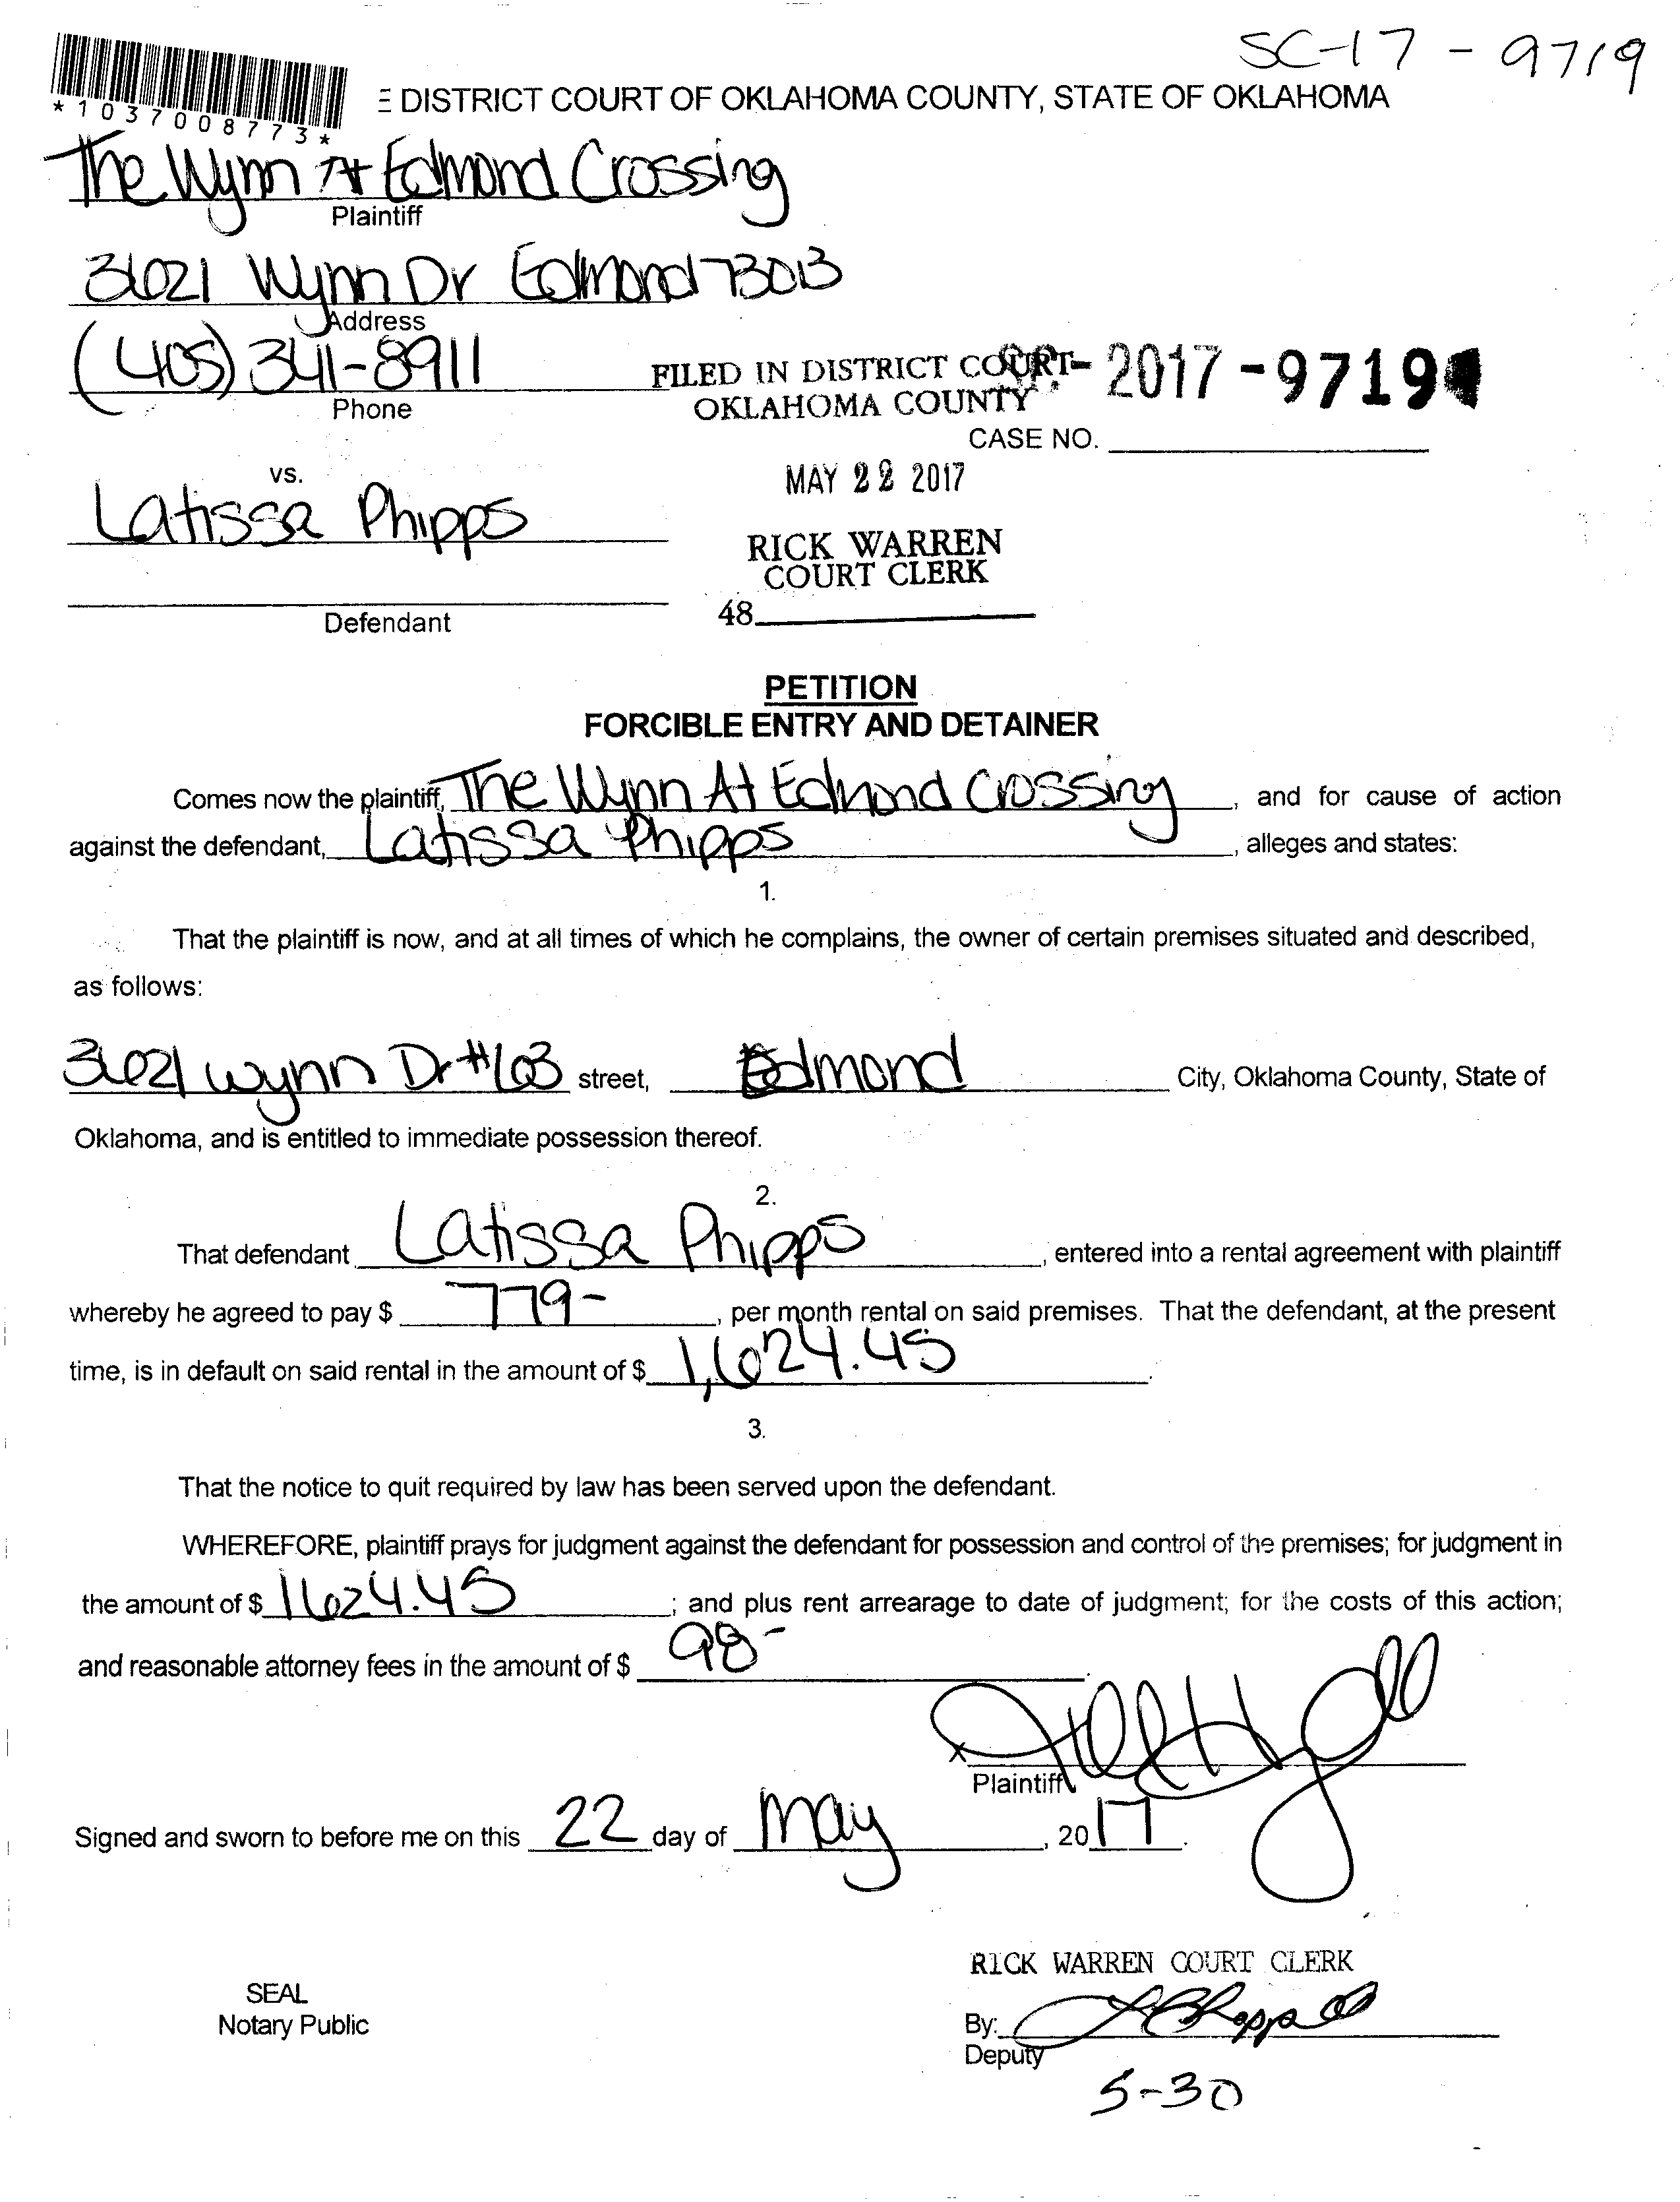 SC-17-9719
*1037008773*
E DISTRICT COURT OF OKLAHOMA COUNTY, STATE OF OKLAHOMA
The Wynn At Edmond Crossing
Plaintiff
3621 Wynn Dr Edmond 73013
Address
(405) 341-8911
Phone
FILED IN DISTRICT COURT
OKLAHOMA COUNTY
2017-9719
CASE NO.
MAY 22 2017
vs.
Latissa Phipps
RICK WARREN
COURT CLERK
48
Defendant
PETITION
FORCIBLE ENTRY AND DETAINER
Comes now the plaintiff, The Wynn At Edmond Crossing, and for cause of action
against the defendant, Latissa Phipps, alleges and states:
1.
That the plaintiff is now, and at all times of which he complains, the owner of certain premises situated and described,
as follows:
3621 Wynn Dr #103 street, Edmond City, Oklahoma County, State of
Oklahoma, and is entitled to immediate possession thereof.
2.
That defendant Latissa Phipps, entered into a rental agreement with plaintiff
whereby he agreed to pay $ 779-, per month rental on said premises. That the defendant, at the present
time, is in default on said rental in the amount of $ 1,624.45.
3.
That the notice to quit required by law has been served upon the defendant.
WHEREFORE, plaintiff prays for judgment against the defendant for possession and control of the premises; for judgment in
the amount of $ 1624.45; and plus rent arrearage to date of judgment; for the costs of this action;
and reasonable attorney fees in the amount of $ 98-.
x
Plaintiff
Signed and sworn to before me on this 22 day of May, 2017.
RICK WARREN COURT CLERK
SEAL
Notary Public
By:
Deputy
5-30